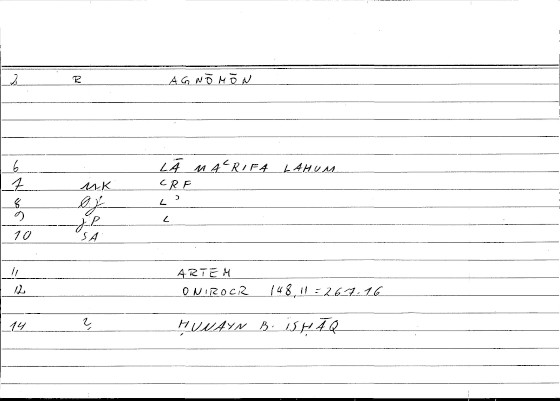 3 R AGNŌMŌN
6 LĀ MAʿRIFA LAHUM
7 MK ʿRF
8 Øj Lʾ
9 jP L
10 SA
11 ARTEM
12 ONIROCR 148,11 = 267.16
14 2 ḤUNAYN B. ISḤĀQ